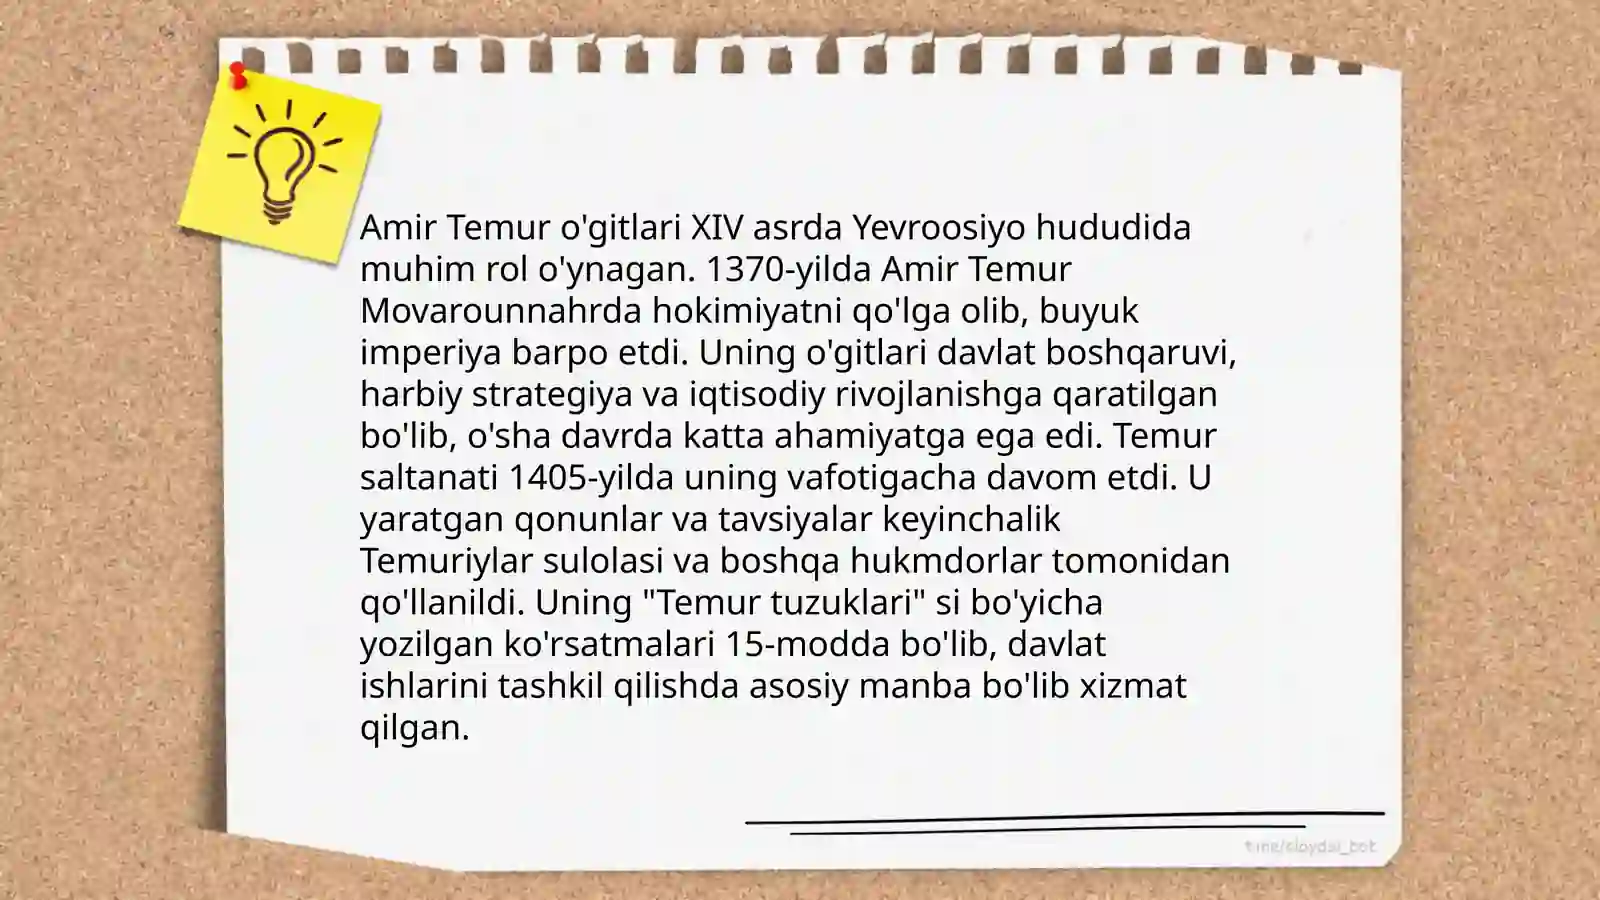 Amir Temur o'gitlari XIV asrda Yevroosiyo hududida
muhim rol o'ynagan. 1370-yilda Amir Temur
Movarounnahrda hokimiyatni qo'lga olib, buyuk
imperiya barpo etdi. Uning o'gitlari davlat boshqaruvi,
harbiy strategiya va iqtisodiy rivojlanishga qaratilgan
bo'lib, o'sha davrda katta ahamiyatga ega edi. Temur
saltanati 1405-yilda uning vafotigacha davom etdi. U
yaratgan qonunlar va tavsiyalar keyinchalik
Temuriylar sulolasi va boshqa hukmdorlar tomonidan
qo'llanildi. Uning "Temur tuzuklari" si bo'yicha
yozilgan ko'rsatmalari 15-modda bo'lib, davlat
ishlarini tashkil qilishda asosiy manba bo'lib xizmat
qilgan.